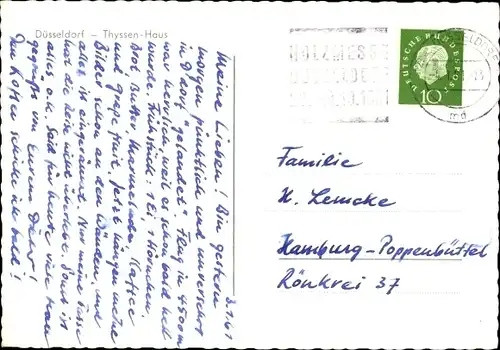 Düsseldorf – Thyssen-Haus
3.1.61
Meine Lieben! Bin gestern
morgen pünktlich und unversehrt
in D'dorf "gelandet". Flug in 4500m
war herrlich, weil es schon bald hell
wurde. Frühstück: 1 Ei, 1 Hörnchen,
Brot, Butter, Marmelade, Kaffee
und Grapefruit. Jetzt hängen meine
Bilder schon an den Wänden, und
alles ist eingeräumt. Nur meine Vase
hat die Reise nicht überlebt. Sonst ist
alles o.k. Seid für heute viele male
gegrüßt von Eurem
Den Koffer schicke ich bald!
DEUTSCHE BUNDESPOST
10
md
Familie
H. Lemcke
Hamburg-Poppenbüttel
Rönkrei 37